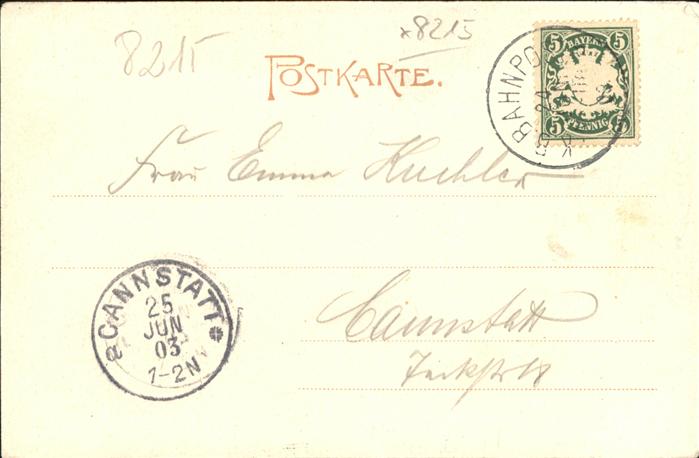 8215
x8215
POSTKARTE.
BAYERN
5 5
5 5
PFENNIG
K.B. BAHNPO
24
Frau Emma Kuchler
CANNSTATT
25
JUN
03
1-2N
a
Cannstatt